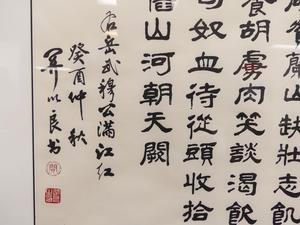 賀蘭山缺壯志飢
餐胡虜肉笑談渴飲
匈奴血待從頭收拾
舊山河朝天闕
右岳武穆公滿江紅
癸酉仲秋
以良书